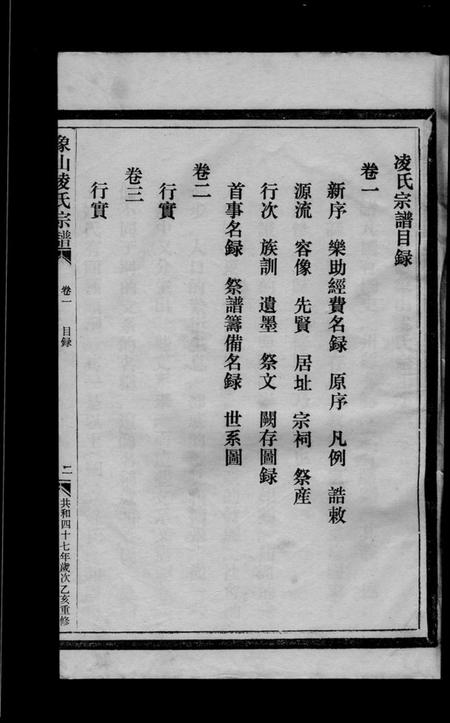 凌氏宗譜目録
卷一
新序 樂助經費名録 原序 凡例 誥敕
源流 容像 先賢 居址 宗祠 祭産
行次 族訓 遺墨 祭文 闕存圖録
首事名録 祭譜籌備名録 世系圖
卷二
行實
卷三
行實
象山凌氏宗譜 卷一 目録 二 共和四十七年歲次乙亥重修